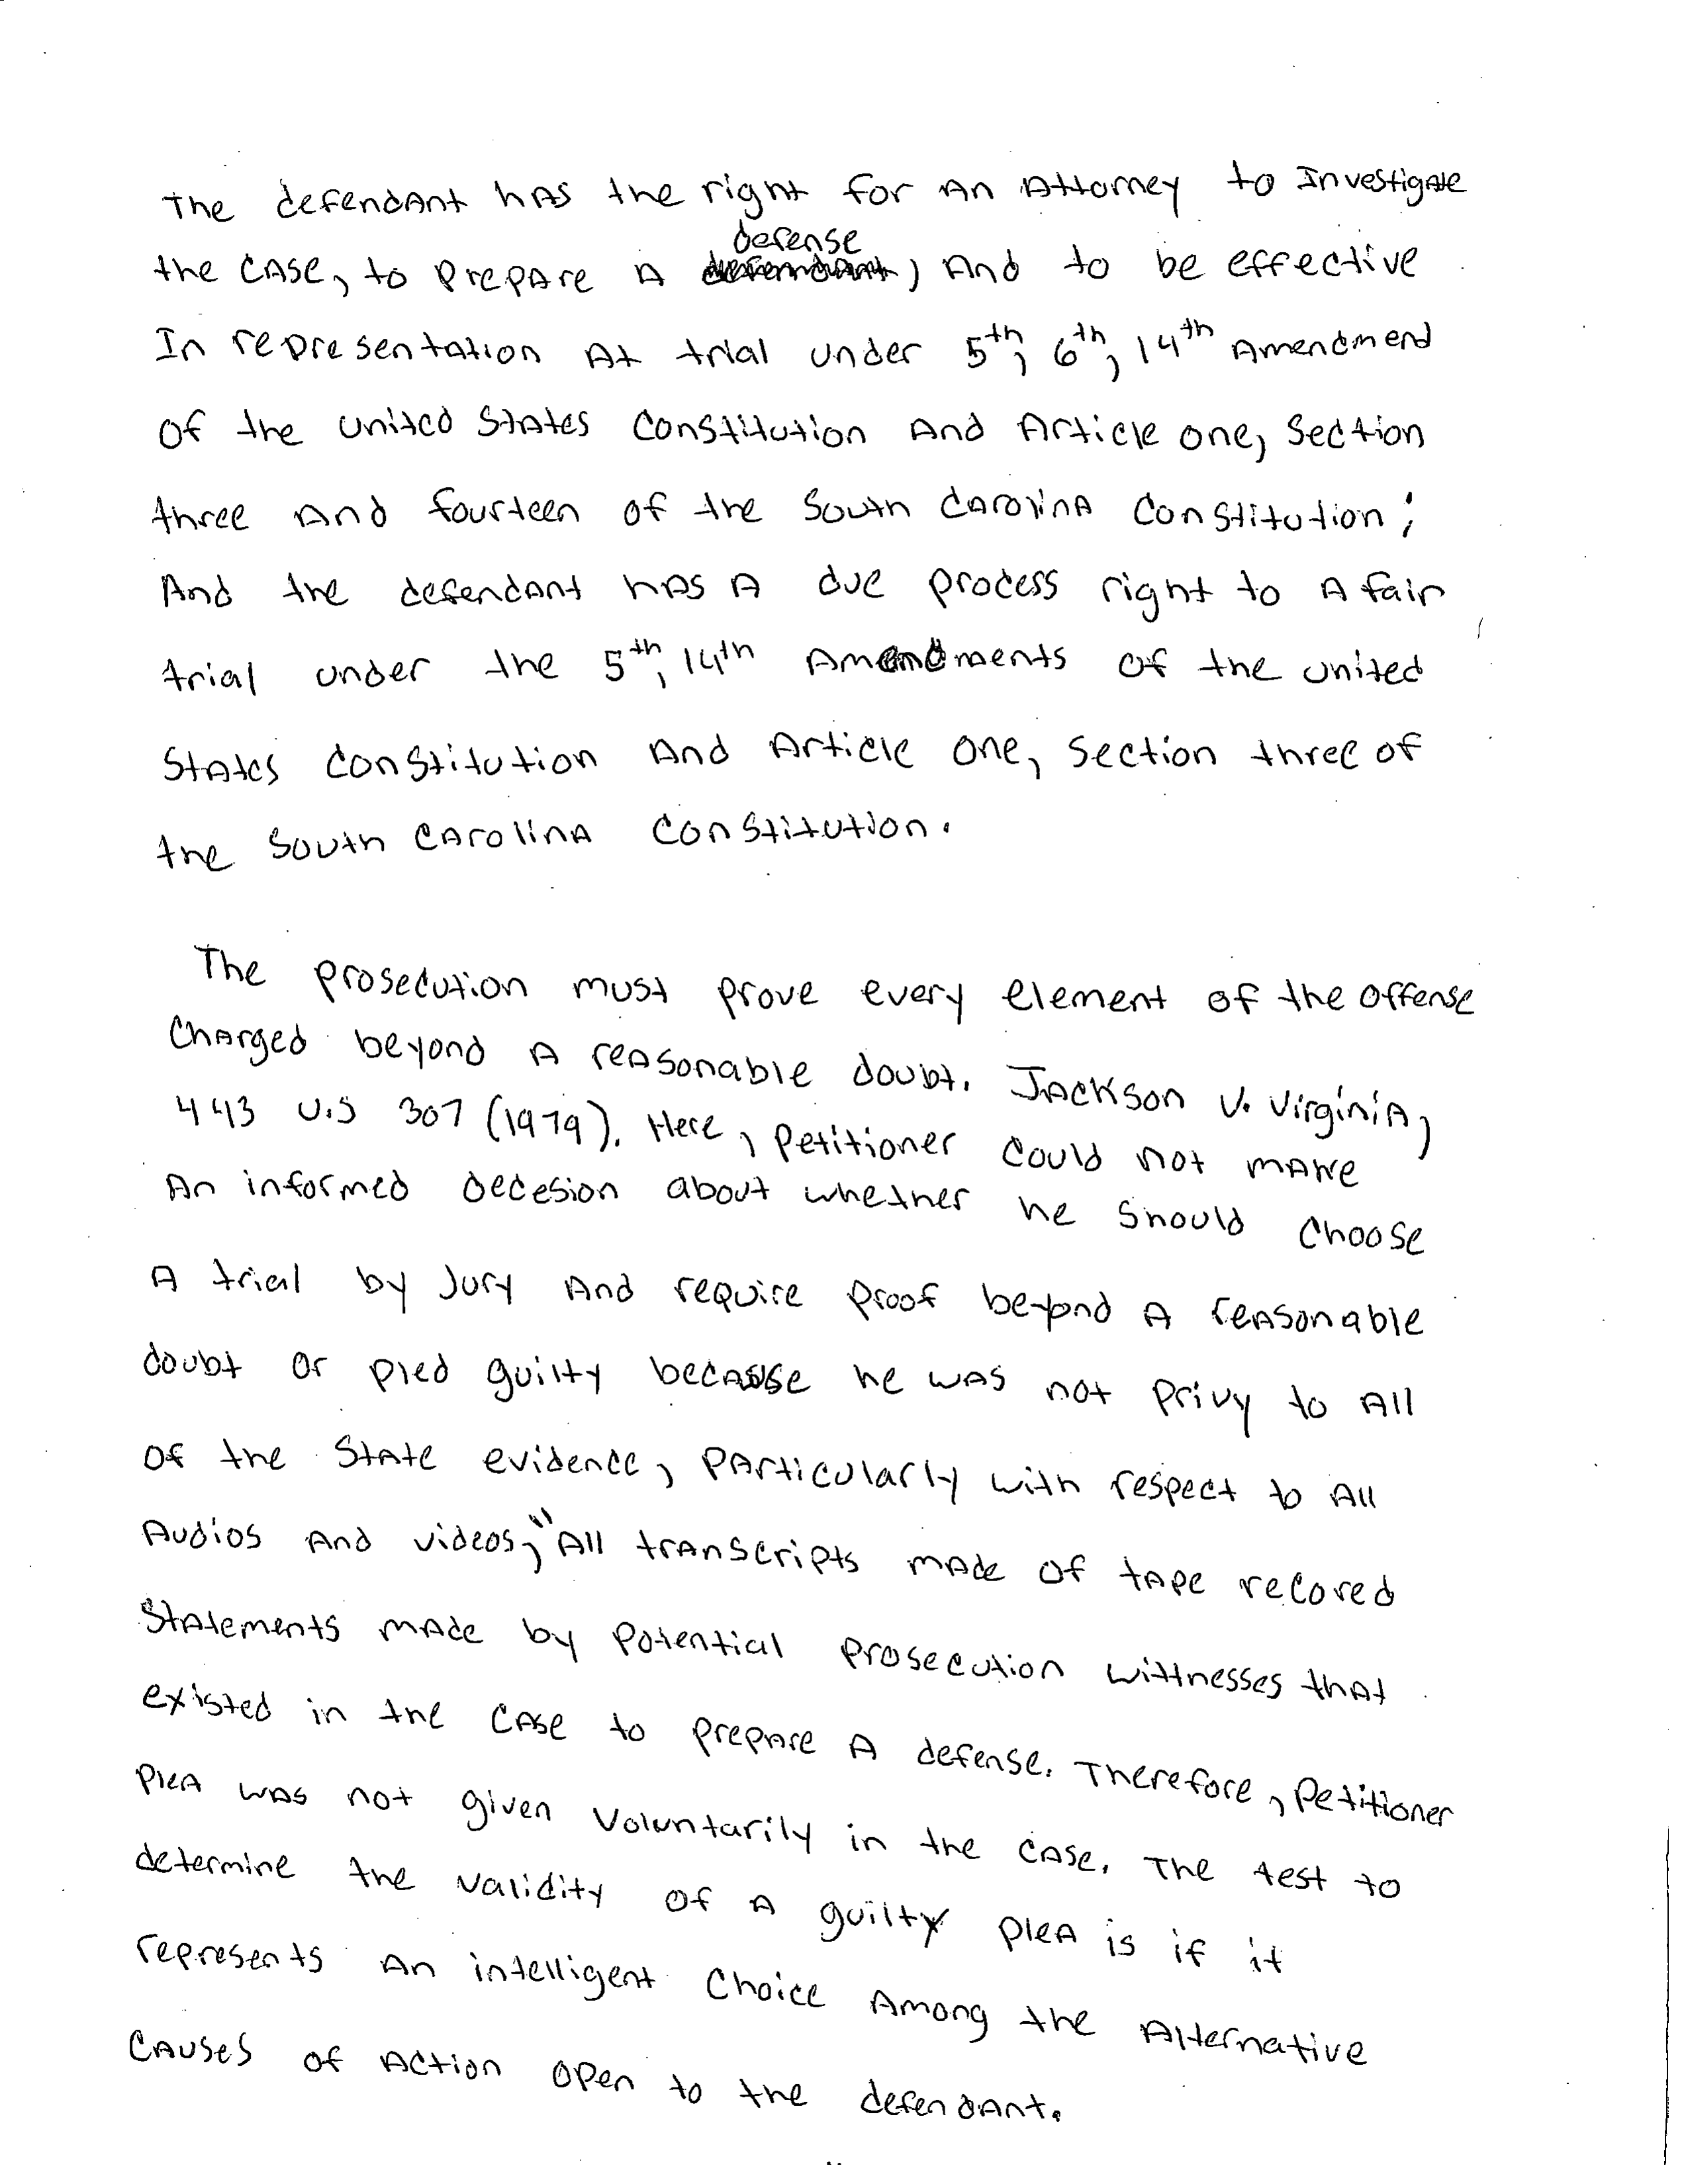 The defendant has the right for an Attorney to Investigate
the case, to prepare a defense, and to be effective
In representation at trial under 5th, 6th, 14th Amendmend
of the united States Constitution and Article one, Section
three and fourteen of the South Carolina Constitution;
And the defendant has a due process right to a fair
trial under the 5th, 14th Amendments of the united
States Constitution and Article one, Section three of
the South Carolina Constitution.
The prosecution must prove every element of the offense
Charged beyond a reasonable doubt. Jackson v. Virginia,
443 U.S 307 (1979). Here, Petitioner could not make
An informed decesion about whether he should choose
A trial by Jury and require proof beyond a reasonable
doubt or pled guilty because he was not privy to All
of the State evidence, Particularly with respect to All
Audios and videos, "All transcripts made of tape recored
Statements made by Potential Prosecution wittnesses that
existed in the case to prepare a defense. Therefore, Petitioner
Plea was not given voluntarily in the case. The test to
determine the validity of a guilty plea is if it
represents an intelligent choice Among the Alternative
Causes of Action open to the defendant.